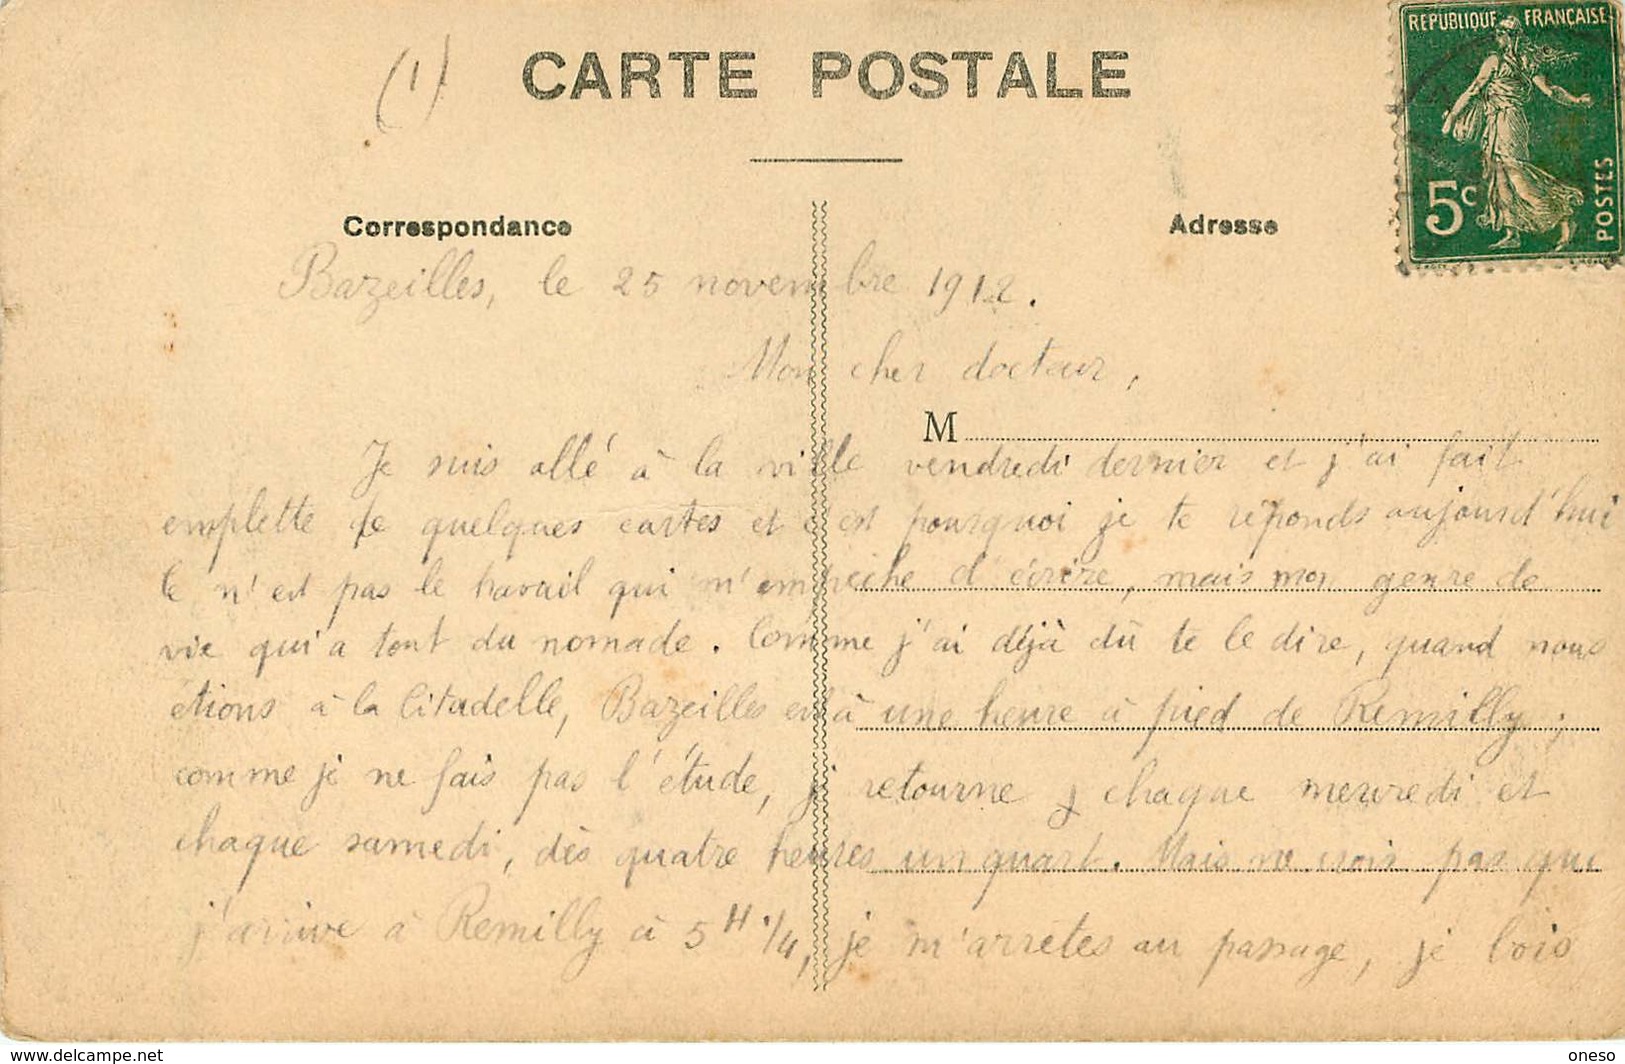 (1)
CARTE POSTALE
REPUBLIQUE FRANÇAISE
5c
POSTES
Correspondance
Adresse
Bazeilles, le 25 novembre 1912.
Mon cher docteur,
M
Je suis allé à la ville vendredi dernier et j'ai fait
emplette de quelques cartes et c'est pourquoi je te réponds aujourd'hui
Ce n'est pas le travail qui m'empêche d'écrire, mais mon genre de
vie qui a tout du nomade. Comme j'ai déjà dû te le dire, quand nous
étions à la Citadelle, Bazeilles est à une heure à pied de Remilly;
comme je ne fais pas l'étude, j'y retourne chaque mercredi et
chaque samedi, dès quatre heures un quart. Mais ne crois pas que
j'arrive à Remilly à 5H 1/4, je m'arrêtes au passage, je bois
www.delcampe.net
oneso